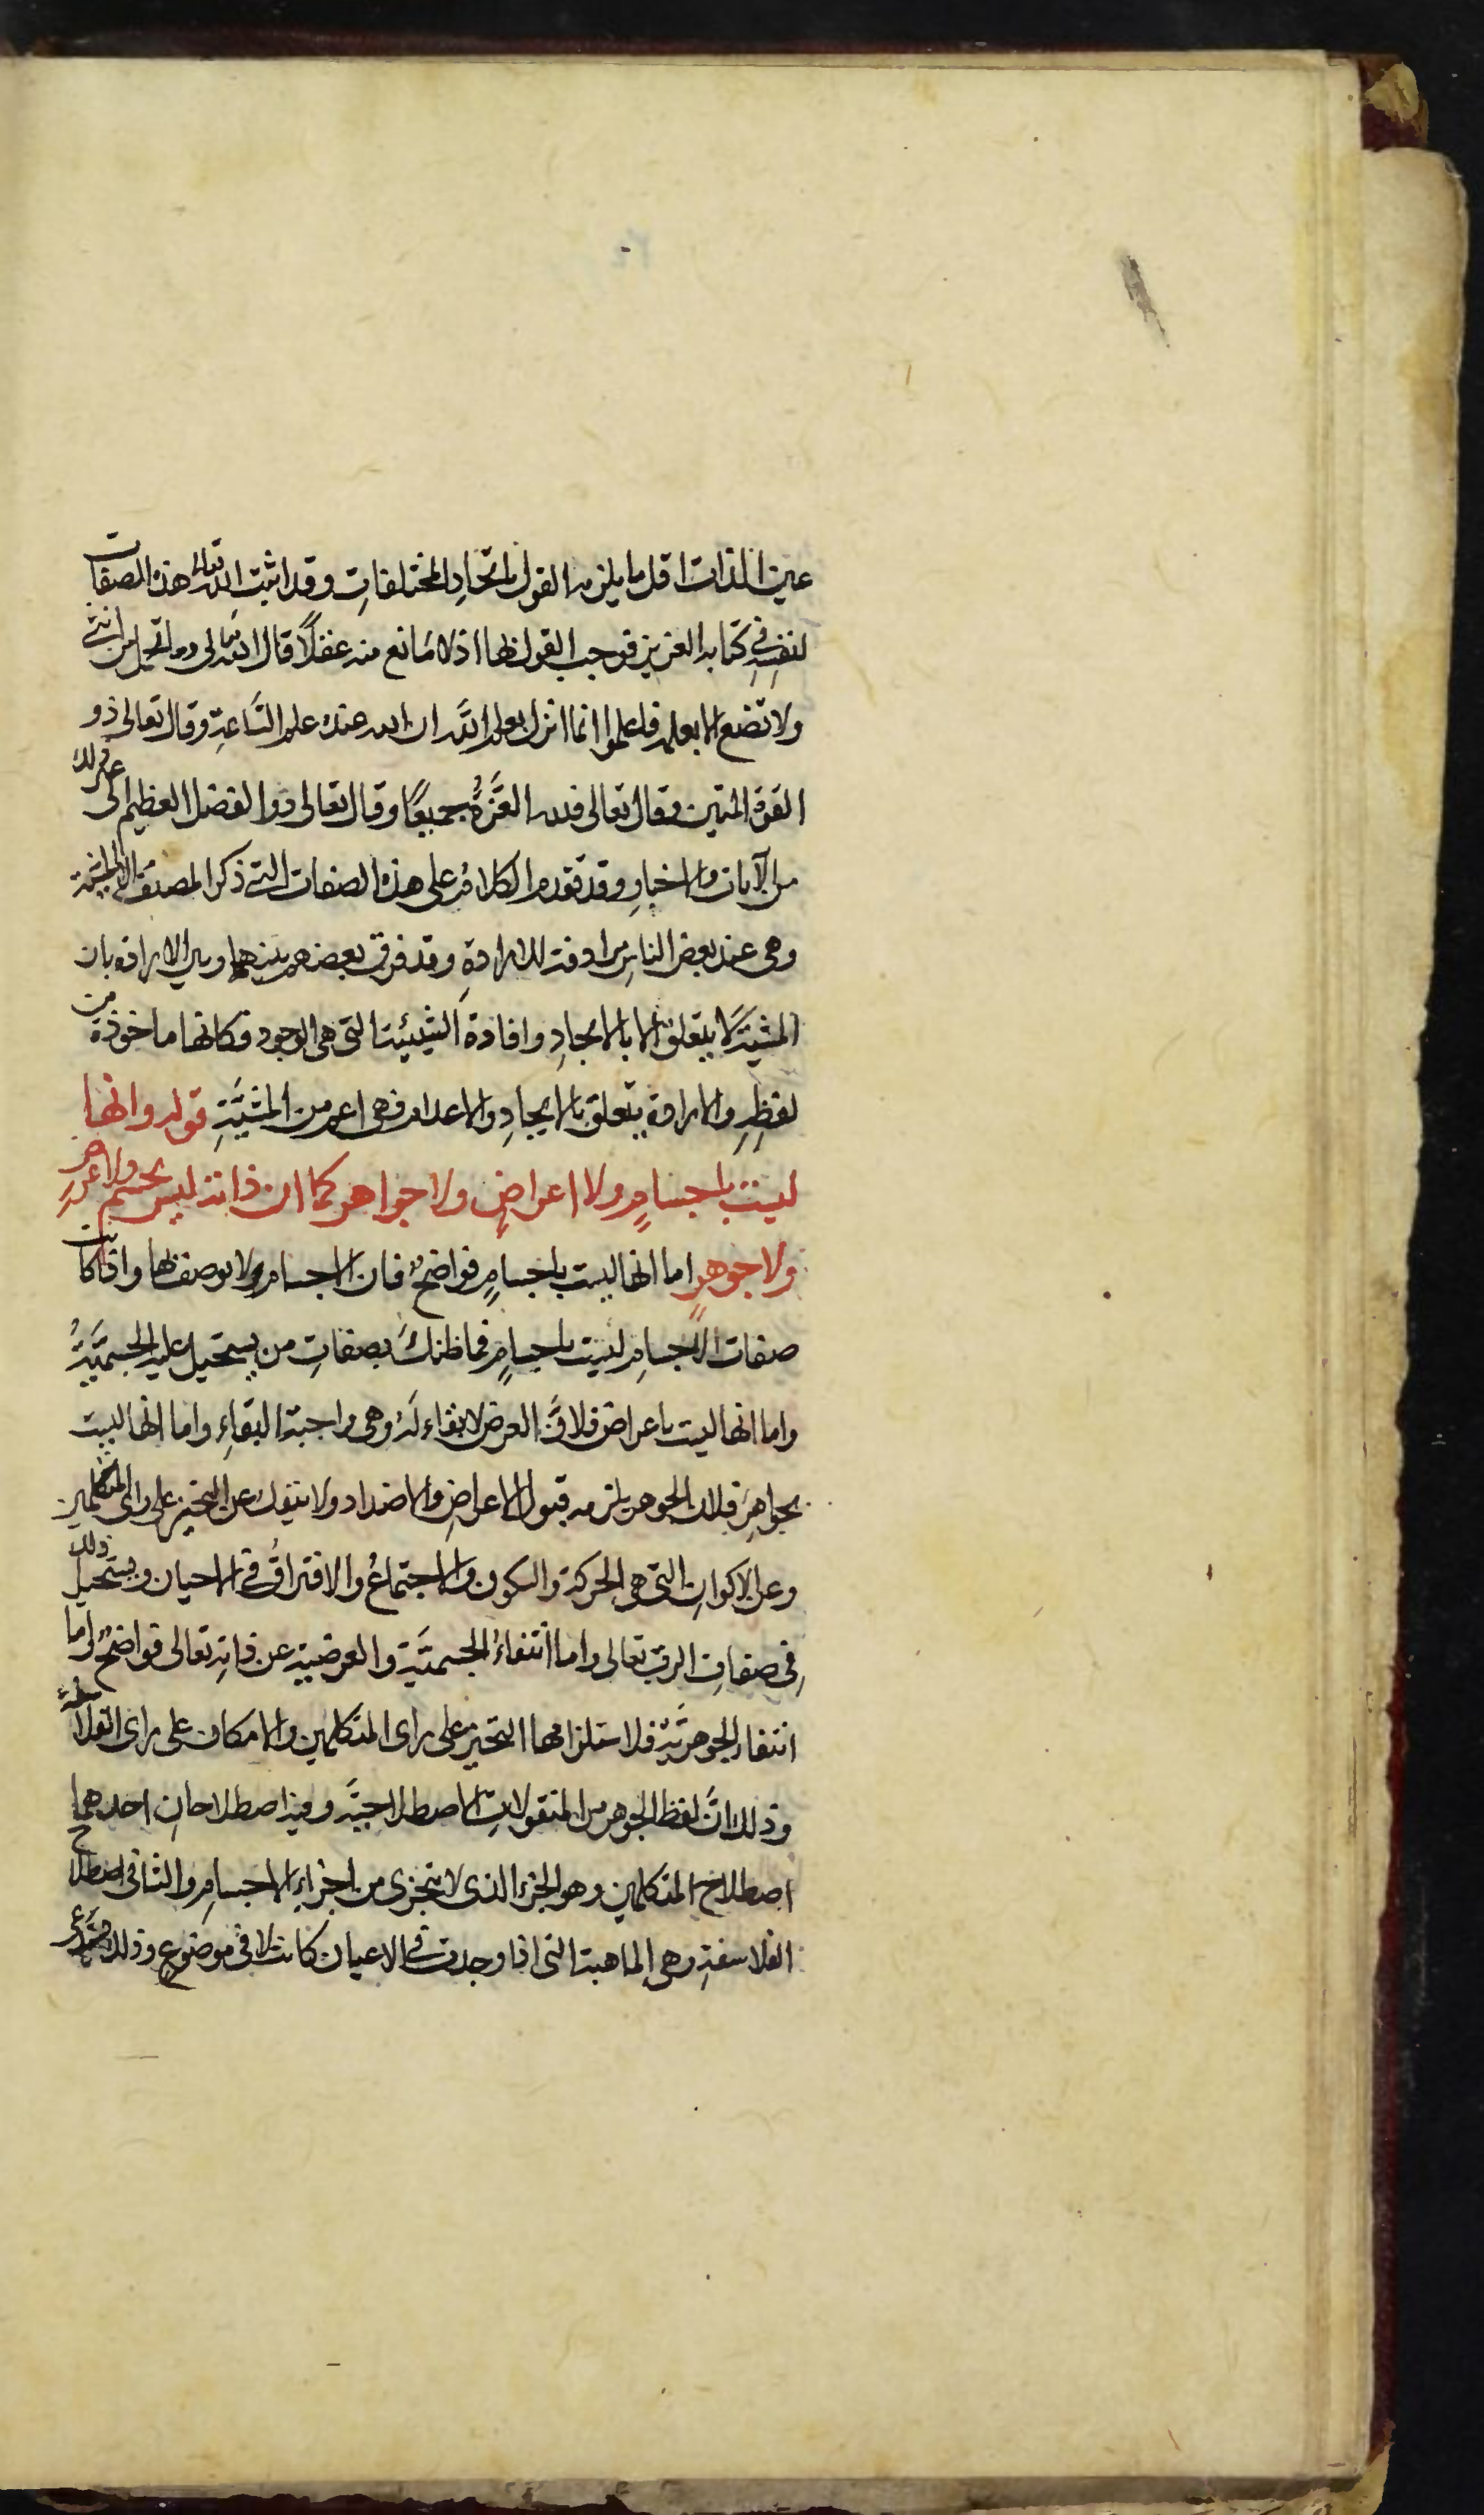 عين الذات اقل ما يلزمه القول باتحاد المختلفات وقد اثبت الله تعالى هذه الصفات
لنفسه في كتابه العزيز فوجب القول بها اذ لا مانع منه عقلاً قال الله تعالى وما تحمل من انثى
ولا تضع الا بعلمه فاعلموا انما انزل بعلم الله ان الله عنده علم الساعة وقال تعالى ذو
القوة المتين وقال تعالى فلله العزة جميعًا وقال تعالى ذو الفضل العظيم الى غير ذلك
من الآيات والاخبار وقد تقدم الكلام على هذه الصفات التي ذكر المصنف الا المشية
وهي عند بعض الناس مرادفة للارادة وقد فرق بعضهم بينهما وبين الارادة بان
المشية لا يتعلق الا بالايجاد وافادة الشيئية التي هي الوجود فكانها ماخوذة من
لفظه والارادة يتعلق بالايجاد والاعدام فهي اعم من المشية قوله وانها
ليست باجسام ولا اعراض ولا جواهر كما ان ذاته ليس بجسم ولا عرض
ولا جوهر اما انها ليست باجسام فواضح فان الاجسام لا يوصف بها واذا كانت
صفات الاجسام ليست باجسام فما ظنك بصفات من يستحيل عليه الجسمية
واما انها ليست باعراض فلان العرض لا بقاء له وهي واجبة البقاء واما انها ليست
بجواهر فلان الجوهر يلزمه قبول الاعراض والاضداد ولا ينفك عن التحيز على راى المتكلمين
وعن الاكوان التي هي الحركة والسكون والاجتماع والافتراق في الاحيان ويستحيل ذلك
في صفات الرب تعالى واما انتفاء الجسمية والعرضية عن ذاته تعالى فواضح واما
انتفاء الجوهرية فلاستلزامها التحيز على راى المتكلمين والامكان على راى الفلاسفة
وذلك ان لفظ الجوهر من المنقولات الاصطلاحية وفيه اصطلاحان احدهما
اصطلاح المتكلمين وهو الجزء الذى لا يتجزى من اجزاء الاجسام والثانى اصطلاح
الفلاسفة وهي الماهية التى اذا وجدت في الاعيان كانت لا في موضوع وذلك